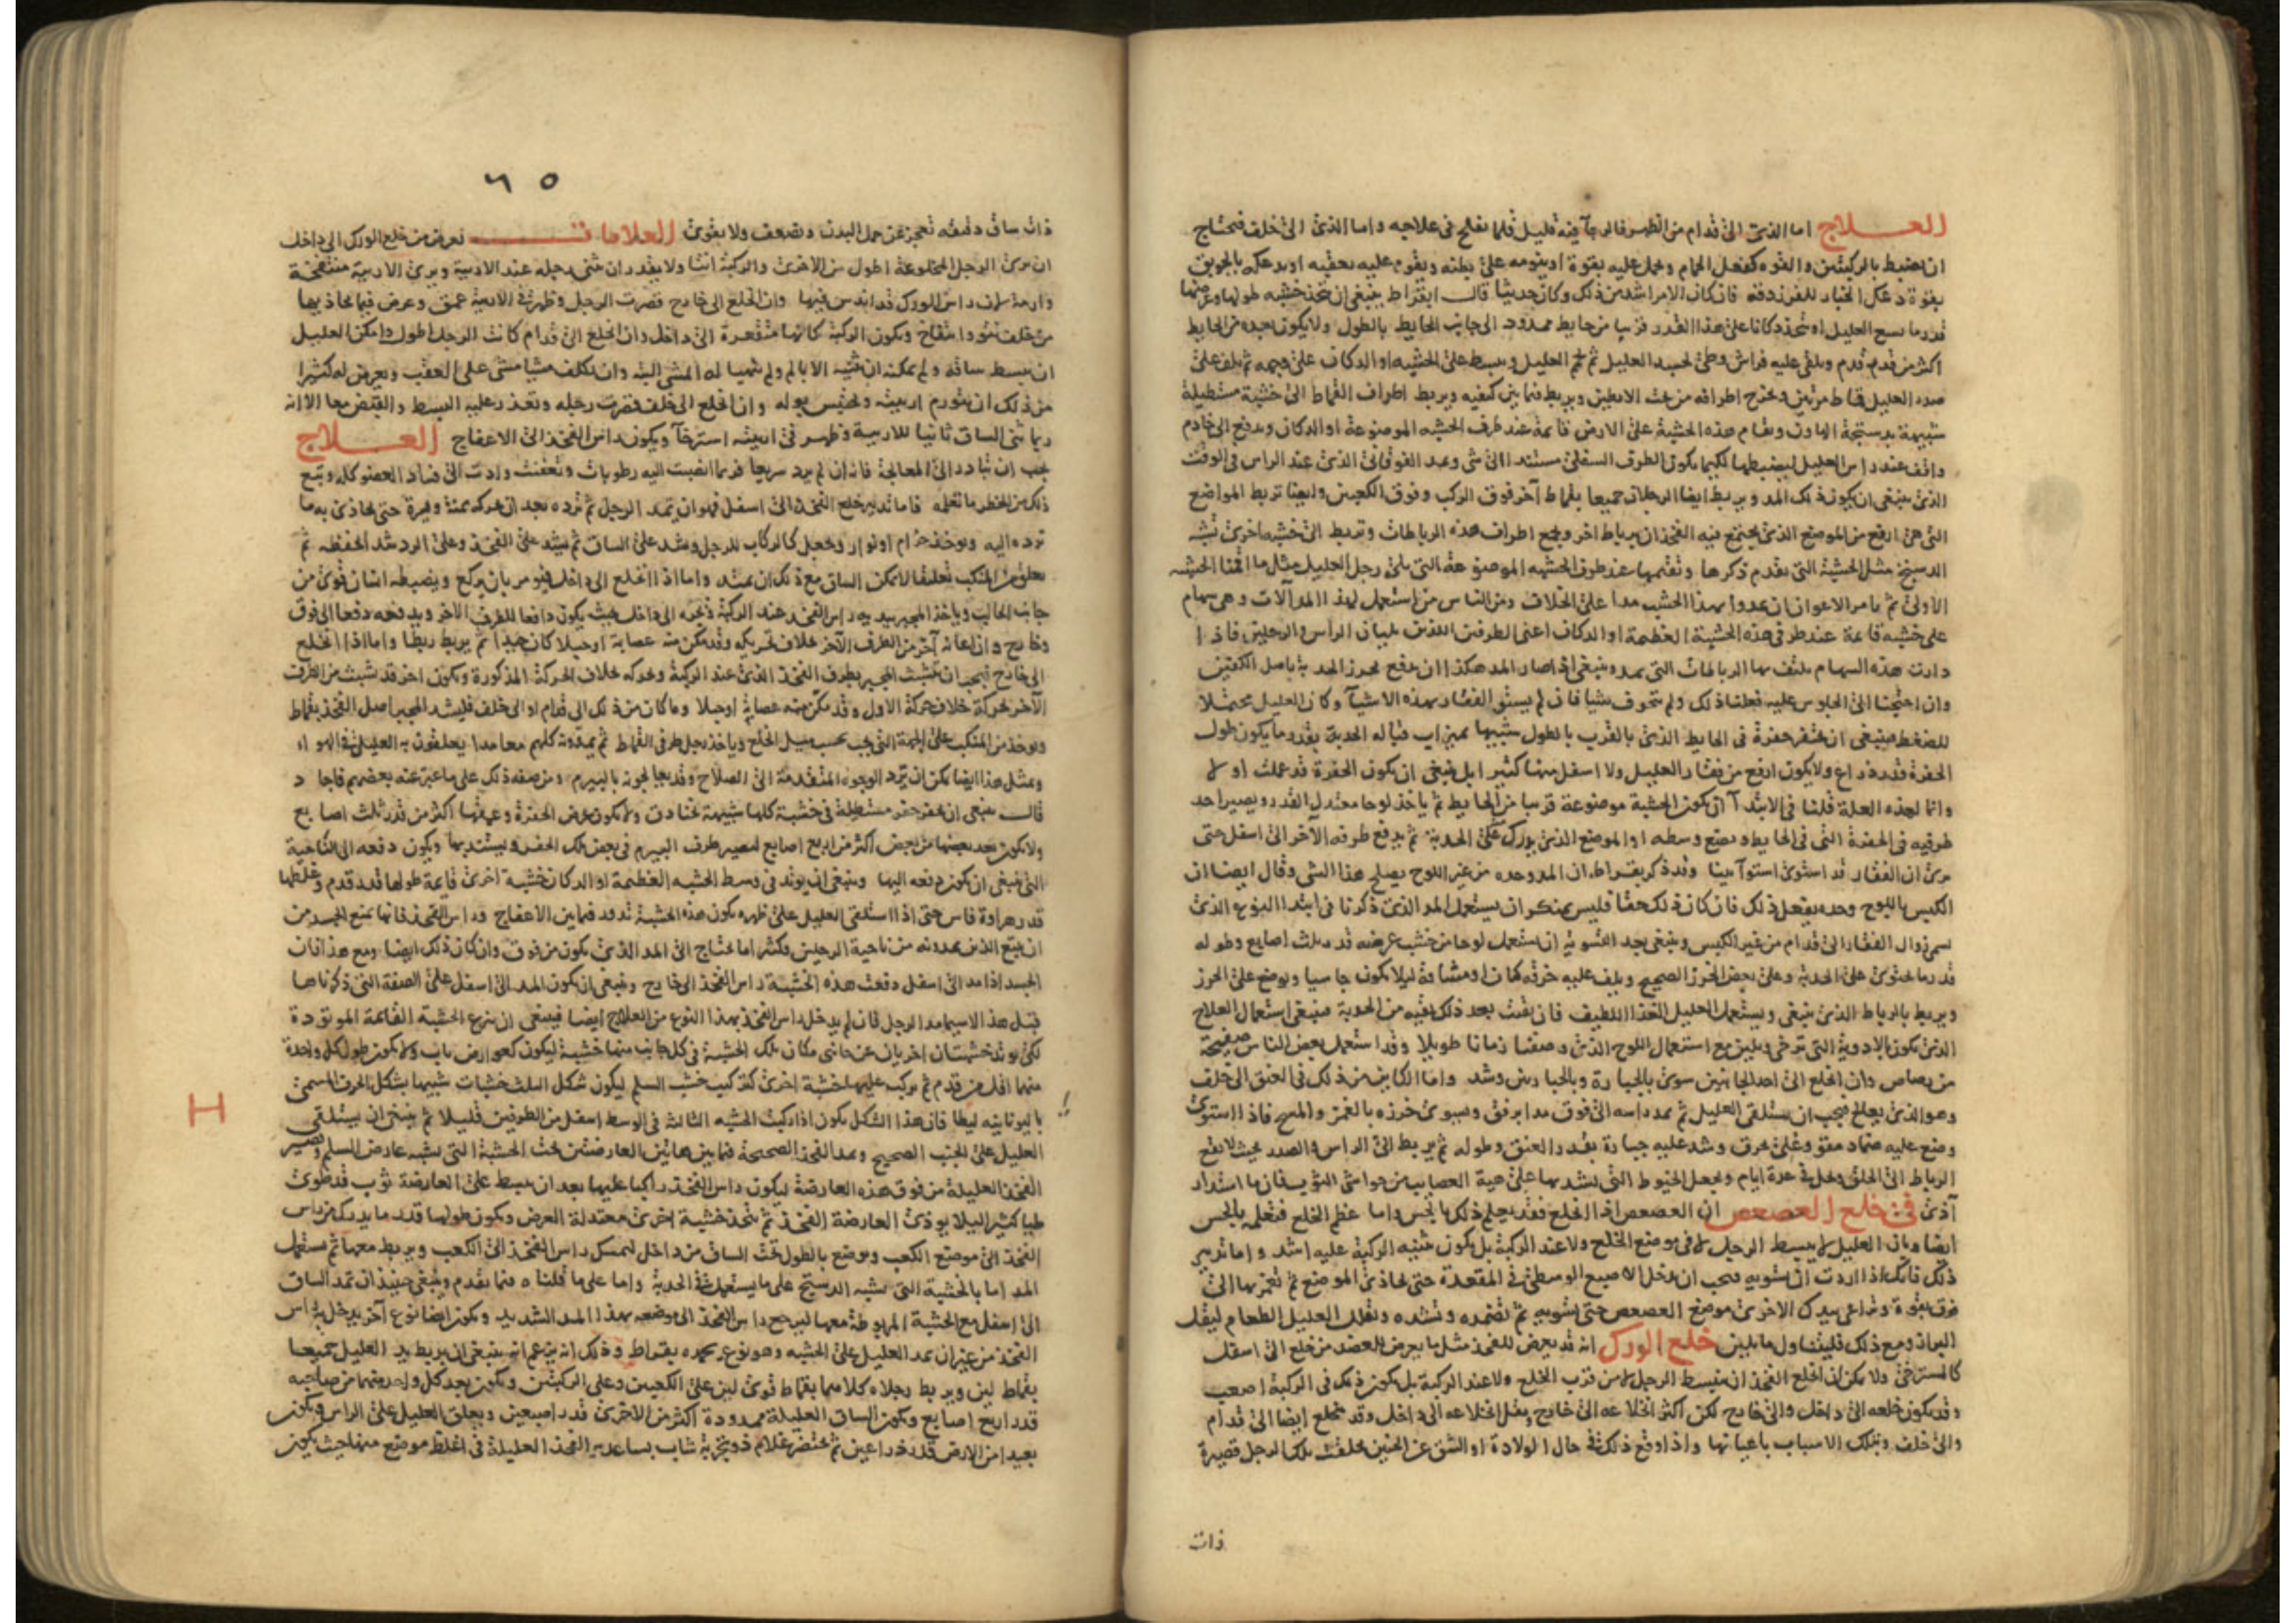 العلاج اما الذى الى قدام من الظهر فالرجآ فيه قليل فلما يفلح فى علاجه واما الذى الى خلف فيحتاج
ان يضبط بالركبتين والقوه كفعل الحمام ويحمل عليه بقوة او ينومه على بطنه ويقوم عليه بعقبيه او يدعكه بالجوبق
بقوة دعك الخباز للفرزدقه فان كان الامر اشد من ذلك وكان حديثا قال ابقراط ينبغى ان تتخذ خشبه طولها وعرضها
قدر ما يسع العليل او تتخذ دكانا على هذا القدر قريبا من حايط ممدود الى جانب الحايط بالطول ولا يكون بعده من الحايط
اكثر من قدم قدم ويلقى عليه فراش وطى لجسد العليل ثم العليل ويبسط على الخشبه او الدكان على وجهه ثم يلف على
صدر العليل قماط مرتين ويخرج اطرافه من تحت الابطين ويربط فيما بين كتفيه ويربط اطراف القماط الى خشبة مستطيلة
شبيهة بدستجة الهاون وتقام هذه الخشبة على الارض قايمة عند طرف الخشبه الموضوعة او الدكان ويدفع الى خادم
واقف عند راس العليل ليضبطها لكيما يكون الطرف السفلى مستندا الى شى ويمد الفوقانى الذى عند الراس فى الوقت
الذى ينبغى ان يكون ذلك المد ويربط ايضا الرجلان جميعا بقماط آخر فوق الركب وفوق الكعبين وايضا تربط المواضع
التى هى ارفع من الموضع الذى يجتمع فيه الفخذان برباط اخر ويجمع اطراف هذه الرباطات وتربط الى خشبه اخرى تشبه
الدستج مثل الخشبة التى تقدم ذكرها ونقيمها عند طرف الخشبه الموضوعة التى تلى رجل العليل مثل ما اقمنا الخشبه
الاولى ثم يامر الاعوان ان يمدوا بهذا الخشب مدا على الخلاف ومن الناس من استعمل لهذا المد آلات وهى سهام
على خشبه قايمة عند طرفى هذه الخشبة العظيمة او الدكان اعنى الطرفين اللذين يليان الراس والرجلين فاذا
دارت هذه السهام يلتف بها الرباطات التى يمد وينبغى اذا صار المد هكذا ان يدفع بحرز الحدبة باصل الكفين
وان احتجنا الى الجلوس عليه فعلنا ذلك ولم نتخوف شيا فان لم يستو الفقار بهذه الاشيآ وكان العليل محتملا
للضغط فينبغى ان تحفر حفرة فى الحايط الذى بالقرب بالطول شبيها بميزاب قباله الحدبة بقدر ما يكون طول
الحفرة قدر ذراع ولا يكون ارفع من فقار العليل ولا اسفل منها كثيرا بل ينبغى ان يكون الحفرة قد عملت اولا
وانما لهذه العلة قلنا فى الابتدآ ان يكون الخشبة موضوعة قريبا من الحايط ثم ياخذ لوحا معتدل القدر ويصير احد
طرفيه فى الحفرة التى فى الحايط ويضع وسطه او الموضع الذى يورك على الحدبة ثم يدفع طرفه الآخر الى اسفل حتى
يرى ان الفقار قد استوى استوآ بينا وقد ذكر بقراط ان المد وحده من غير اللوح يصلح هذا الشى وقال ايضا ان
الكبس باللوح وحده يفعل ذلك فان كان ذلك حقا فليس بمنكر ان يستعمل المد الذى ذكرنا فى ابتدا النوع الذى
يسمى زوال الفقار الى قدام من غير الكبس وينبغى بعد التسوية ان يستعمل لوحا من خشب عرضه قدر ثلث اصابع وطوله
قدر ما يحتوى على الحدبة وعلى بعض الخرز الصحيح ويلف عليه خرقه كتان او مشاقة ليلا يكون جاسيا ويوضع على الخرز
ويربط بالرباط الذى ينبغى ويستعمل العليل الغذا اللطيف فان بقيت بعد ذلك بقيه من الحدبة فينبغى استعمال العلاج
الذى يكون بالادوية التى ترخى وتلين مع استعمال اللوح الذى وصفنا زمانا طويلا وقد استعمل بعض الناس صفيحة
من رصاص وان انخلع الى احد الجانبين سوى بالجبارة وبالجبارتين وشد واما الكاين من ذلك فى العنق الى خلف
وهو الذى يعالج فيجب ان يستلقى العليل ثم يمد راسه الى فوق مدا برفق ويسوى خرزه بالغمز والمسح فاذا استوى
وضع عليه ضماد مقو وعلى بخرق وشد عليه جبارة بقدر العنق وطوله ثم يربط الى الراس والصدر بحيث لا يقع
الرباط الى الحلق ويحل فى عدة ايام ويجعل الخيوط التى يشد بها على هية العصايب من حواشى الثوب فان ما استدار
آذى فى خلع العصعص ان العصعص اذا انخلع فقد يعلم ذلك بالجس واما عظم الخلع فتعلمه بالجس
ايضا وبان العليل لا يبسط الرجل لا فى موضع الخلع ولا عند الركبة بل يكون ثنيه الركبة عليه اشد واما تدبير
ذلك فانك اذا اردت ان تسويه فيجب ان تدخل الاصبع الوسطى فى المقعدة حتى تحاذى الموضع ثم تغمز بها الى
فوق بقوة وتراعى بيدك الاخرى موضع العصعص حتى تسويه ثم تضمده وتشده وتقلل العليل الطعام ليقل
البراز ومع ذلك فليتناول ما يلين خلع الورك انه قد يعرض للفخذ مثل ما يعرض للعضد من خلع الى اسفل
كالمسترخى ولا يمكن اذا انخلع الفخذ ان ينبسط الرجل لا من قرب الخلع ولا عند الركبة بل يكون ذلك فى الركبة اصعب
وقد يكون خلعه الى داخل والى خارج لكن اكثر انخلاعه الى خارج ويقل انخلاعه الى داخل وقد ينخلع ايضا الى قدام
والى خلف وتلك الاسباب باعيانها واذا وقع ذلك فى حال الولادة او الشق عن الجنين تخلفت تلك الرجل قصيرة
ذات
٦٥
ذات ساق دقيقه تعجز عن حمل البدن وتضعف ولا يقوى العلامات تعرض من خلع الورك الى داخل
ان يرى الرجل المخلوعة اطول من الاخرى والركبة انتا ولا يقدر ان يثنى رجله عند الاربية ويرى الاربية منتفخة
وارمة لان راس الورك قد اندس فيها وان انخلع الى خارج قصرت الرجل وظهر فى الاربية عمق وعرض فيما يحاذيها
من خلف نتو وانتفاخ ويكون الركبة كانها منقعرة الى داخل وان انخلع الى قدام كانت الرجل اطول وامكن العليل
ان يبسط ساقه ولم يمكنه ان يثنيه الا بالم ولم يتهيا له المشى البتة وان تكلف مشيا مشى على العقب ويعرض له كثيرا
من ذلك ان يتورم اربيته ويحتبس بوله وان انخلع الى خلف قصرت رجله وتعذر عليه البسط والقبض معا الا انه
ربما ثنى الساق ثانيا للاربية وظهر فى اربيته استرخآ ويكون راس الفخذ الى الاعفاج العلاج
يجب ان تبادر الى المعالجة فانه ان لم يرد سريعا فربما انصبت اليه رطوبات وتعفنت وادت الى فساد العضو كله ويتبع
ذلك من الخطر ما تعلمه فاما تدبير خلع الفخذ الى اسفل فهو ان تمد الرجل ثم ترده بعد ان تحركه يمنة ويسرة حتى تحاذى به ما
ترده اليه ويوخذ حزام او نوار ويجعل كالركاب للرجل ويشد على الساق ثم يشد على الفخذ وعلى الرد شد الحفظه ثم
يعلق من المنكب تعليقا لا يمكن الساق مع ذلك ان يمتد واما اذا انخلع الى داخل فيومر بان يركع ويضبطه انسان قوى من
جانب الحالب وياخذ المجبر بيديه راس الفخذ عند الركبة ويجره الى داخل بحيث يكون دافعا للطرف الاخر ويدفعه دفعا الى فوق
وخارج وان اعانه آخر من الطرف الآخر خلاف تحريكه وقد مكن منه عصابة او حبلا كان جيدا ثم يربط ربطا واما اذا انخلع
الى خارج فيجب ان يتشبث المجبر بطرف الفخذ الذى عند الركبة وتحركه خلاف الحركة المذكورة ويكون اخر قد تشبث من الطرف
الآخر بحركة خلاف حركة الاول وقد مكن منه عصابة او حبلا وما كان من ذلك الى قدام او الى خلف فليشد المجبر اصل الفخذ بقماط
ويوخذ من المنكب على الجهة التى يجب بحسب ميل الخلع وياخذ رجل طرفى القماط ثم يمدونه كلهم معا مدا يعلقون به العليل فى الهواء
وبمثل هذا ايضا يمكن ان ترد الوجوه المتقدمة الى الصلاح وقد يعالجونه بالبيرم ومن صفة ذلك على ما عبر عنه بعضهم فاجاد
قال ينبغى ان يحفر حفر مستطيلة فى خشبة كلها شبيهة بخنادق ولا يكون عرض الحفرة وعمقها اكثر من قدر ثلث اصابع
ولا يكون بعد بعضها من بعض اكثر من اربع اصابع ليصير طرف البيرم فى بعض تلك الحفر ويستند بها ويكون دفعه الى الناحية
التى ينبغى ان يكون دفعه اليها وينبغى ان يوتد فى وسط الخشبه العظيمة او الدكان خشبة اخرى قايمة طولها قدر قدم وغلظها
قدر هراوة فاس حتى اذا استلقى العليل على ظهره يكون هذه الخشبة تدور فيما بين الاعفاج وراس الفخذ فانها تمنع الجسد من
ان يتبع الذين يمدونه من ناحية الرجلين وكثيرا ما يحتاج الى المد الذى يكون من فوق وان كان ذلك ايضا ومع هذا فان
الجسد اذا مد الى اسفل دفعت هذه الخشبة راس الفخذ الى خارج وينبغى ان يكون المد الى اسفل على الصفة التى ذكرناها
قبل هذا لا سيما مد الرجل فان لم يدخل راس الفخذ بهذا النوع من العلاج ايضا فينبغى ان ينزع الخشبة القايمة الموتودة
لكى يوتد خشبتان اخريان عن جانبى مكان تلك الخشبة فى كل جانب منها خشبة ليكون كعوارض باب ولا يكون طول كل واحدة
منهما اقل من قدم ثم يركب عليها خشبة اخرى كتركيب خشب السلم ليكون شكل الثلث خشبات شبيها بشكل الحرف المسمى
باليونانيه ايطا فان هذا الشكل يكون اذا ركبت الخشبه الثالثة فى الوسط اسفل من الطرفين قليلا ثم ينبغى ان يستلقى
H
العليل على الجنب الصحيح ويمد الفخذ الصحيحة فيما بين هاتين العارضتين تحت الخشبة التى تشبه عارض السلم وتصير
الفخذ العليلة من فوق هذه العارضة ليكون راس الفخذ راكبا عليها بعد ان يبسط على العارضة ثوب قد طوى
طيا كثيرا ليلا يوذى العارضة الفخذ ثم يتخذ خشبة اخرى معتدلة العرض ويكون طولها قدر ما يدرك من راس
الفخذ الى موضع الكعب ويوضع بالطول تحت الساق من داخل ليمسك راس الفخذ الى الكعب ويربط معها ثم يستعمل
المد اما بالخشبة التى تشبه الدستج على ما يستعمل فى الحدبة واما على ما قلناه فيما تقدم وينبغى حينيذ ان تمد الساق
الى اسفل مع الخشبة المربوطة معها ليرجع راس الفخذ الى موضعه بهذا المد الشديد ويكون ايضا نوع آخر يدخل به راس
الفخذ من غير ان يمد العليل على الخشبه وهو نوع يحمده بقراط وذلك انه يزعم انه ينبغى ان يربط يد العليل جميعا
بقماط لين ويربط رجلاه كلاهما بقماط قوى لين على الكعبين وعلى الركبتين ويكون بعد كل واحد منهما من صاحبه
قدر اربع اصابع ويكون الساق العليلة ممدودة اكثر من الاخرى قدر اصبعين ويعلق العليل على الراس ويكون
بعيدا من الارض قدر ذراعين ثم يحتضن غلام ذو تجربة شاب بساعديه الفخذ العليلة فى اغلظ موضع منها حيث يكون